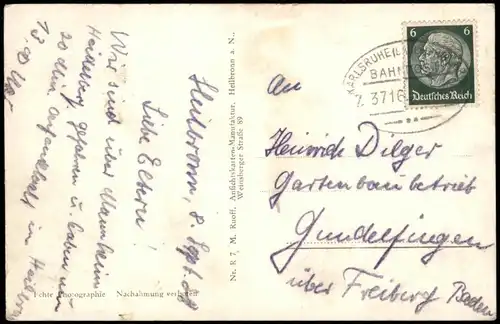 Heilbronn, 8. Sept.
Liebe Eltern!
Wir sind über Mannheim
Heidelberg gefahren u. haben nun
20 Min Aufenthalt in Heilbr
Echte Photographie Nachahmung verboten
Nr. R 7, M. Ruoff, Ansichtskarten-Manufaktur, Heilbronn a. N.,
Weinsberger Straße 89
KARLSRUHE
BAHN
7. 37 16
6 6
Deutsches Reich
An
Heinrich Dilger
Gartenbaubetrieb
Gundelfingen
über Freiburg Baden